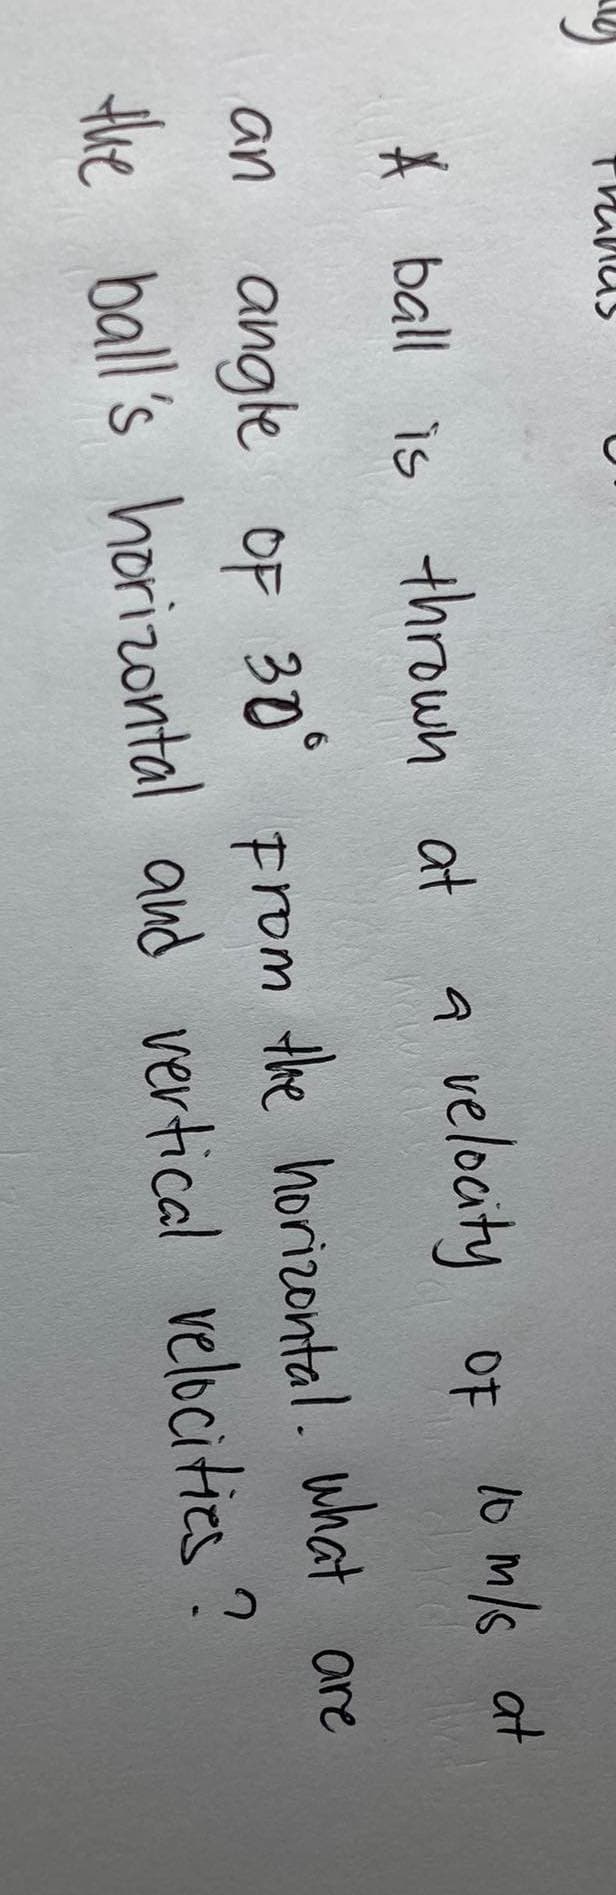 A ball is thrown at a velocity OF 10 m/s at
an angle OF 30° From the horizontal. what are
the ball's horizontal and vertical velocities?